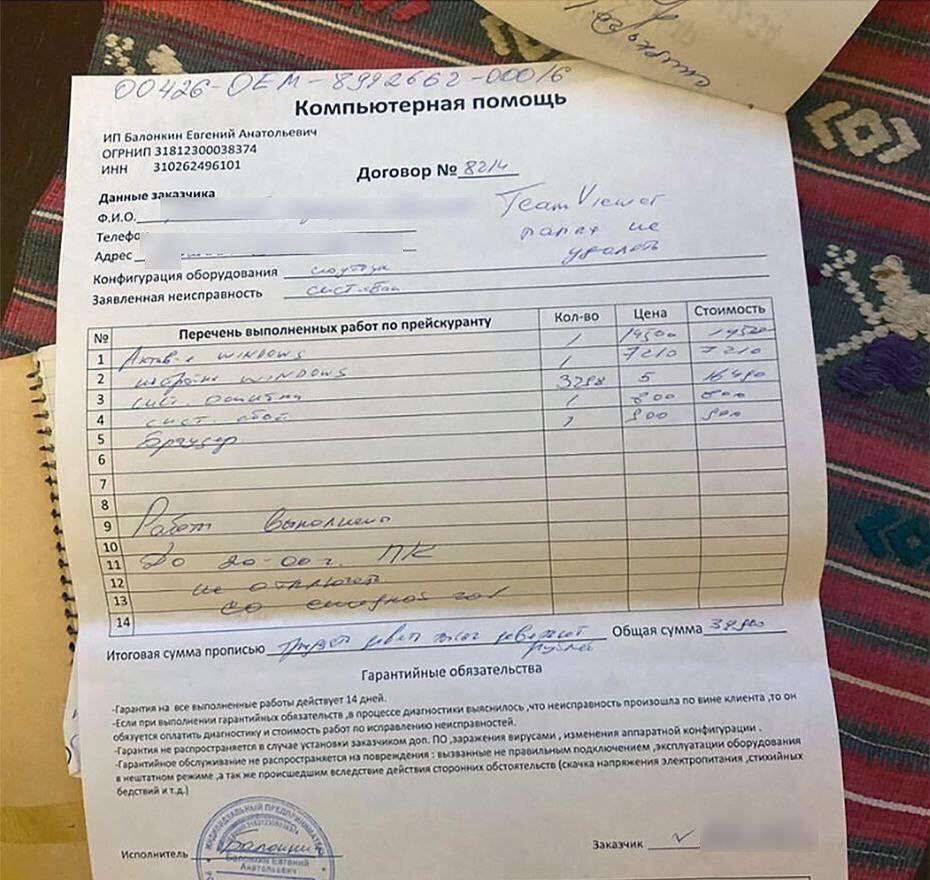 00426-OEM-8992662-00016
Компьютерная помощь
ИП Балонкин Евгений Анатольевич
ОГРНИП 31812300038374
ИНН 310262496101
Договор № 8214
Данные заказчика
TeamViewer
папку не
удалять
Ф.И.О.
Телефо
Адрес
Конфигурация оборудования ноутбук
Заявленная неисправность сист. сбой
№ Перечень выполненных работ по прейскуранту Кол-во Цена Стоимость
1 Актив-я WINDOWS 1 14500 14500
2 настройка WINDOWS 1 7210 7210
3 сист. ошибки 3298 5 16490
4 сист. сбой 1 800 800
5 браузер 1 900 900
6
7
8
9 Работы выполнены
10
11 До 20-00 г. ПК
12 не отключать
13 со
14
Итоговая сумма прописью тысяч девятьсот рублей Общая сумма
Гарантийные обязательства
-Гарантия на все выполненные работы действует 14 дней.
-Если при выполнении гарантийных обязательств ,в процессе диагностики выяснилось ,что неисправность произошла по вине клиента ,то он
обязуется оплатить диагностику и стоимость работ по исправлению неисправностей.
-Гарантия не распространяется в случае установки заказчиком доп. ПО ,заражения вирусами , изменения аппаратной конфигурации .
-Гарантийное обслуживание не распространяется на повреждения : вызванные не правильным подключением ,эксплуатации оборудования
в нештатном режиме ,а так же происшедшим вследствие действия сторонних обстоятельств (скачка напряжения электропитания ,стихийных
бедствий и т.д.)
ИНДИВИДУАЛЬНЫЙ ПРЕДПРИНИМАТЕЛЬ
Исполнитель Балонкин
Балонкин Евгений
Анатольевич
Заказчик